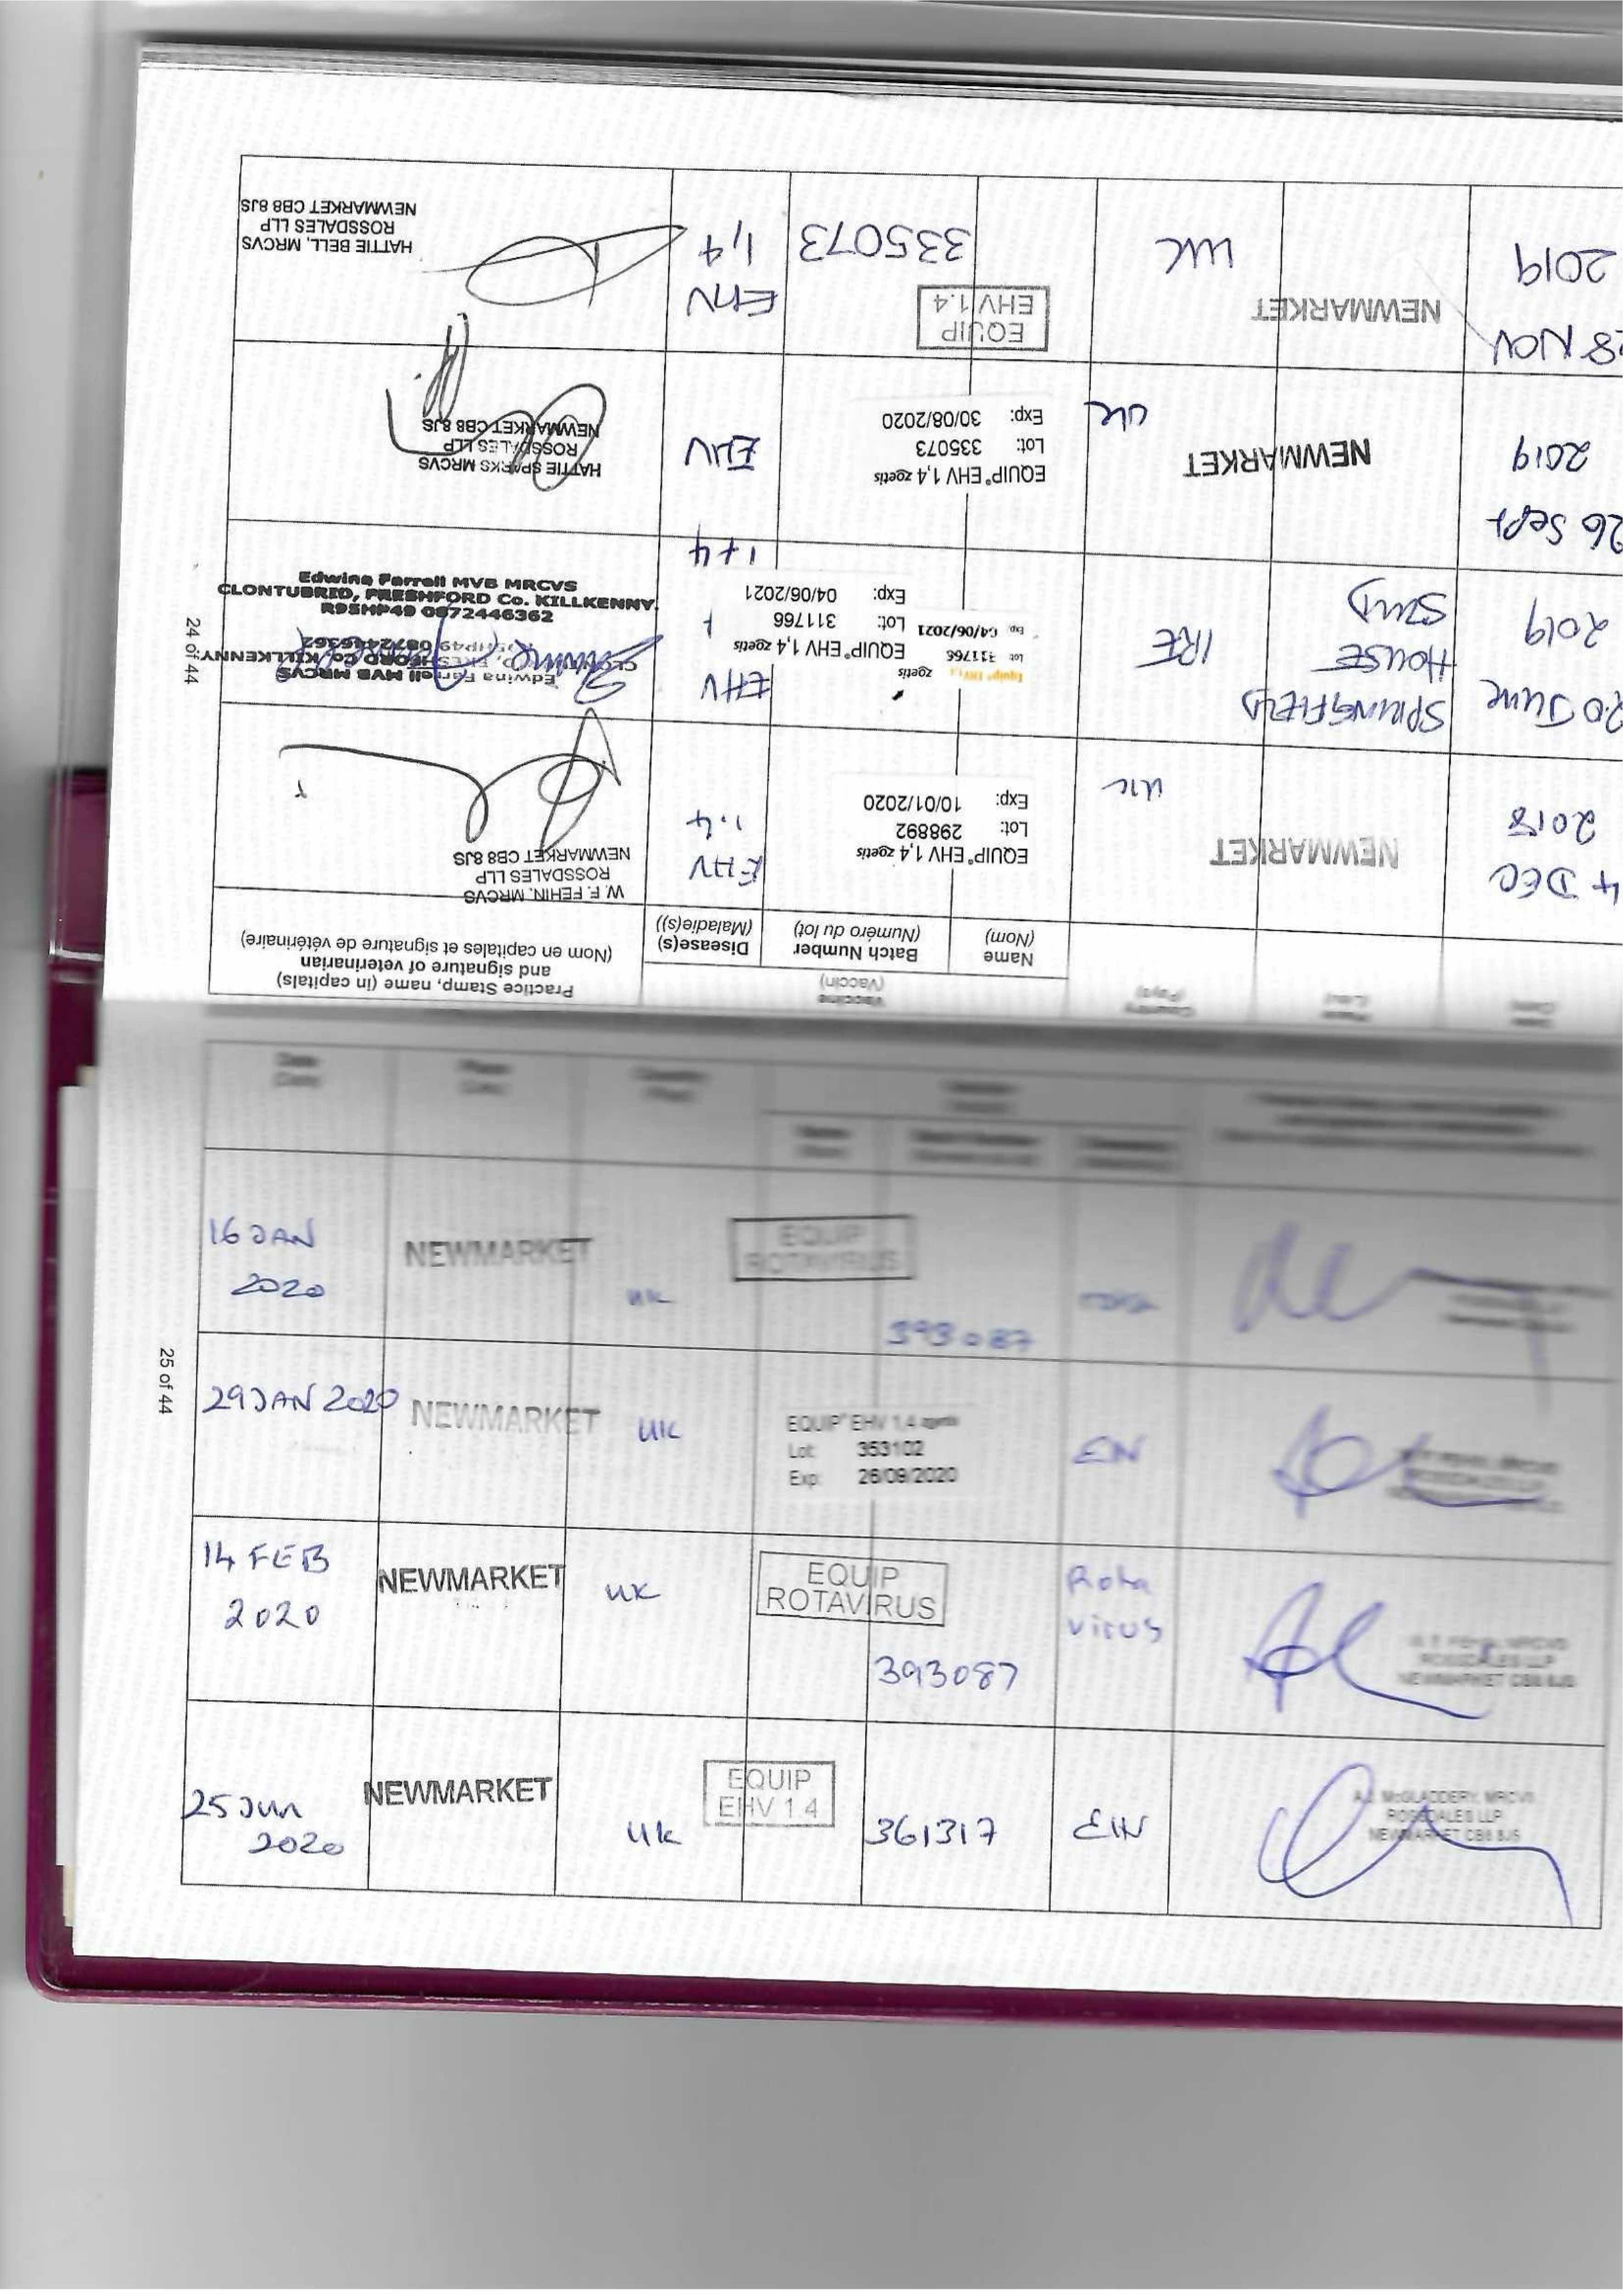 24 of 44
Practice Stamp, name (in capitals)
and signature of veterinarian
(Nom en capitales et signature de vétérinaire)
Vaccine
(Vaccin)
Name
(Nom)
Batch Number
(Numéro du lot)
Disease(s)
(Maladie(s))
Country
(Pays)
Place
(Lieu)
Date
(Date)
4 DEC
2018
NEWMARKET
UK
EQUIP® EHV 1,4 zoetis
Lot: 298892
Exp: 10/01/2020
EHV
1.4
W. F. FEHIN, MRCVS
ROSSDALES LLP
NEWMARKET CB8 8JS
20 June
2019
SPRINGFIELD
HOUSE
STUD
IRE
Equip® EHV 1,4 zoetis
Lot 311766
Exp 04/06/2021
EQUIP® EHV 1,4 zoetis
Lot: 311766
Exp: 04/06/2021
EHV
1+4
Edwina Farrell MVB MRCVS
CLONTUBRID, FRESHFORD Co. KILLKENNY
R95HP49 0872446362
Edwina Farrell MVB MRCVS
CLONTUBRID, FRESHFORD Co. KILLKENNY.
R95HP49 0872446362
26 Sept
2019
NEWMARKET
UK
EQUIP® EHV 1,4 zoetis
Lot: 335073
Exp: 30/08/2020
EHV
HATTIE SPARKS MRCVS
ROSSDALES LLP
NEWMARKET CB8 8JS
28 NOV
2019
NEWMARKET
UK
EQUIP
EHV 1.4
335073
EHV
1,4
HATTIE BELL, MRCVS
ROSSDALES LLP
NEWMARKET CB8 8JS
25 of 44
Date
(Date)
Place
(Lieu)
Country
(Pays)
16 JAN
2020
NEWMARKET
UK
EQUIP
ROTAVIRUS
393087
rota
29 JAN 2020
NEWMARKET
UK
EQUIP® EHV 1,4 zoetis
Lot: 353102
Exp: 26/09/2020
EHV
14 FEB
2020
NEWMARKET
UK
EQUIP
ROTAVIRUS
393087
Rota
virus
W. F. FEHIN, MRCVS
ROSSDALES LLP
NEWMARKET CB8 8JS
25 Jun
2020
NEWMARKET
UK
EQUIP
EHV 1.4
361317
EHV
A.J. McGLADDERY, MRCVS
ROSSDALES LLP
NEWMARKET CB8 8JS